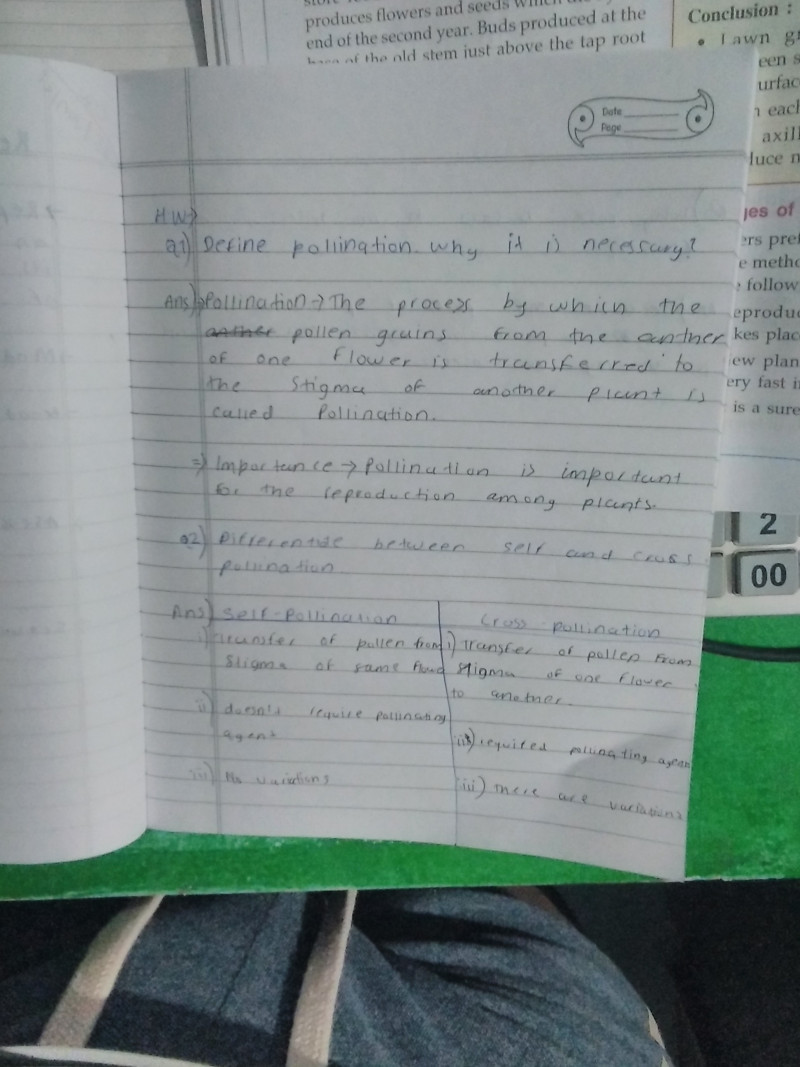 produces flowers and seeds which
end of the second year. Buds produced at the
of the old stem just above the tap root
Conclusion :
• Lawn
each
Date
Page
HW→
Q1) Define pollination. Why it is necessary?
Ans)→Pollination → The process by which the
pollen grains from the anther
of one flower is transferred to
the stigma of another plant is
called Pollination.
⇒ Importance → Pollination is important
for the reproduction among plants.
Q2) Differentiate between self and cross
pollination
Ans) Self-Pollination
i) transfer of pollen from
stigma of same
ii) doesn't require pollinating
agent
iii) No variations
Cross pollination
i) Transfer of pollen from
stigma of one flower
to another.
ii) required agent
iii) there are variations
ges of
follow
is a sure
2
00